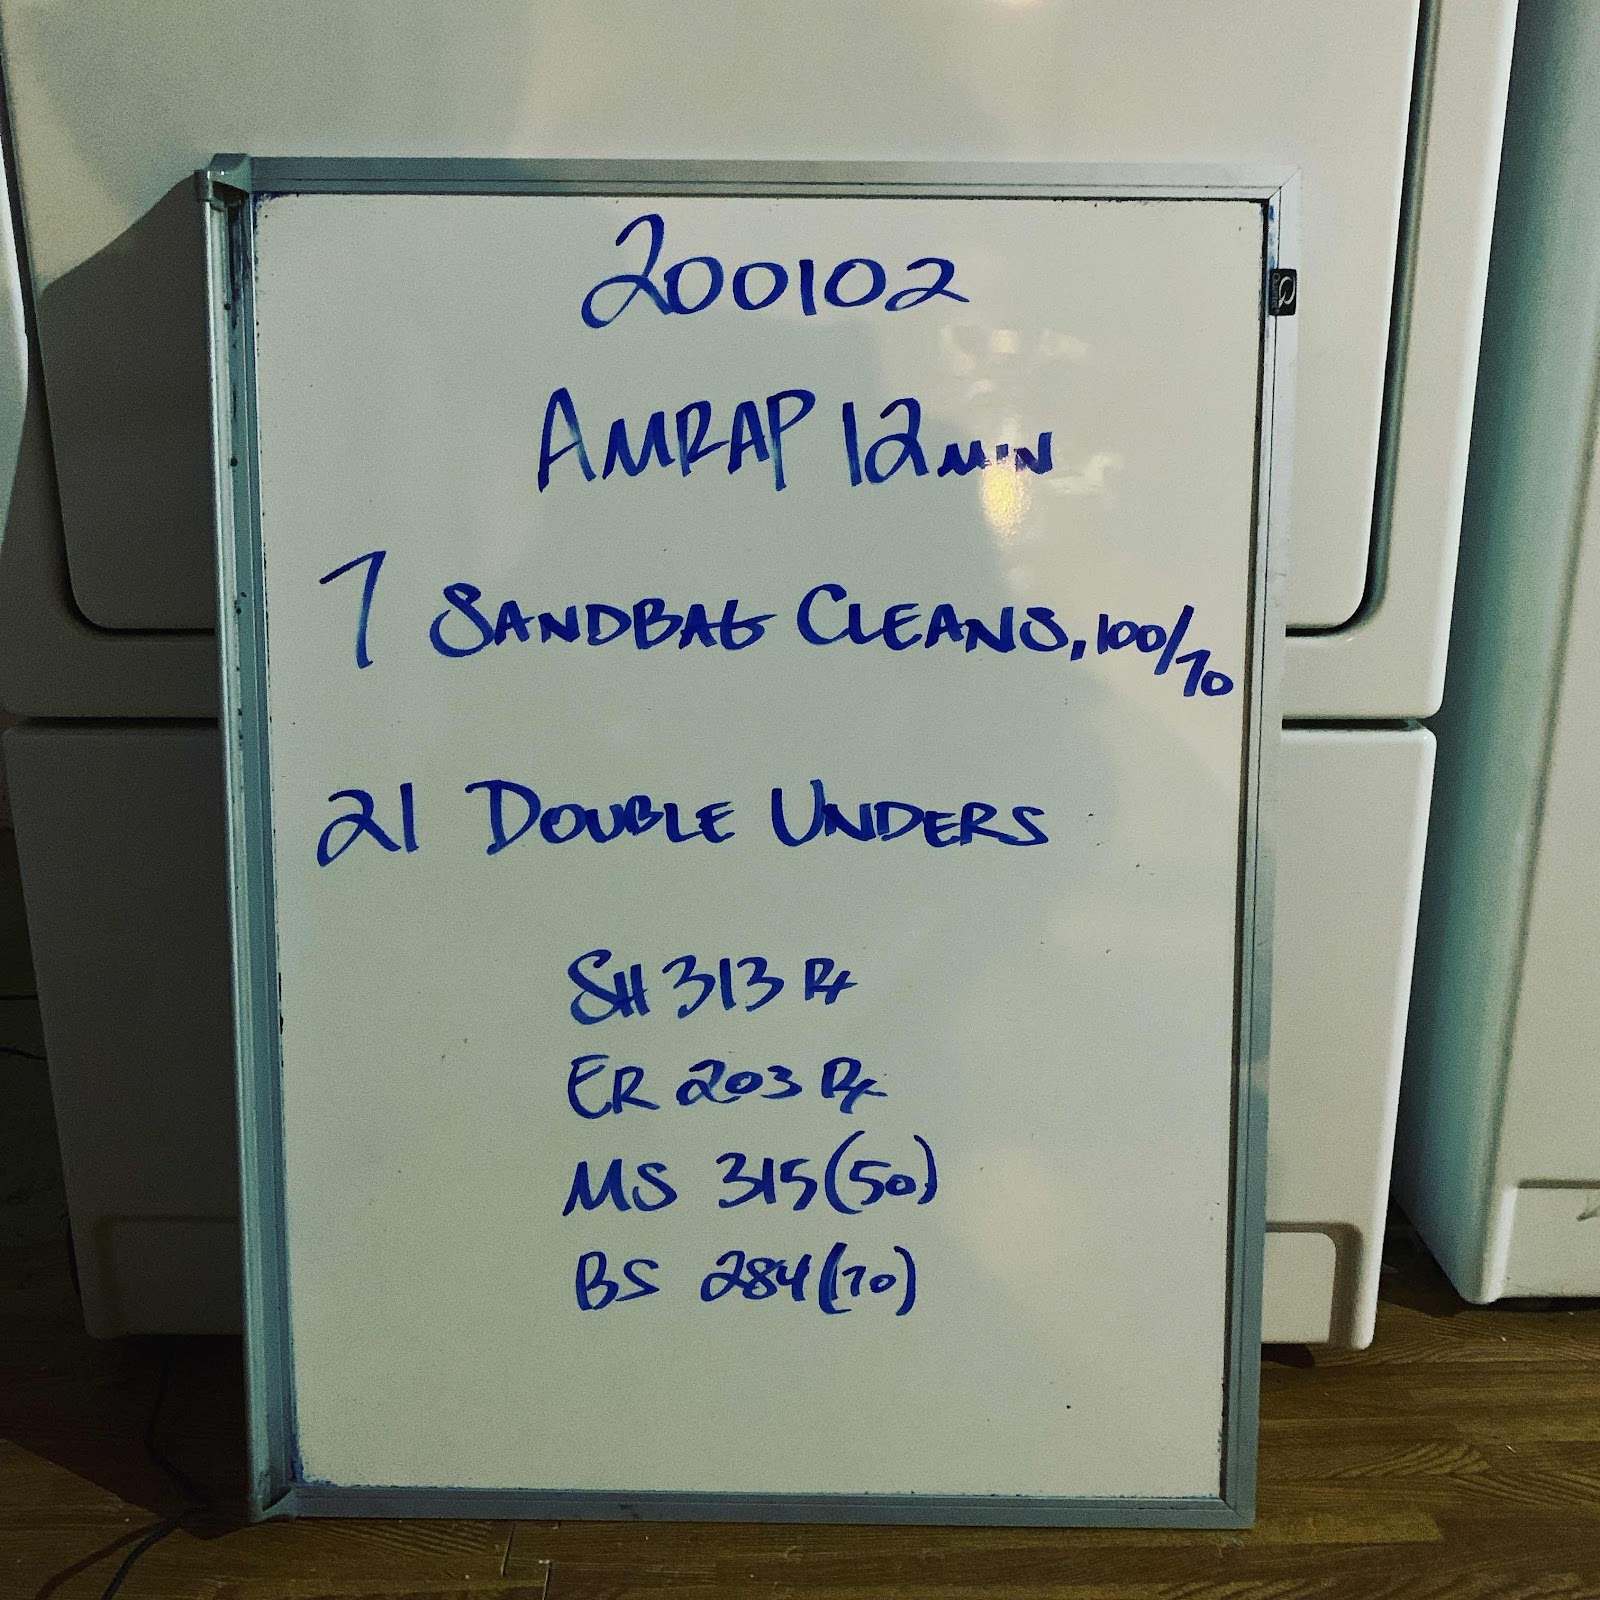 200102
AMRAP 12 MIN
7 SANDBAG CLEANS, 100/70
21 DOUBLE UNDERS
SH 313 Rx
ER 203 Rx
MS 315 (50)
BS 284 (70)